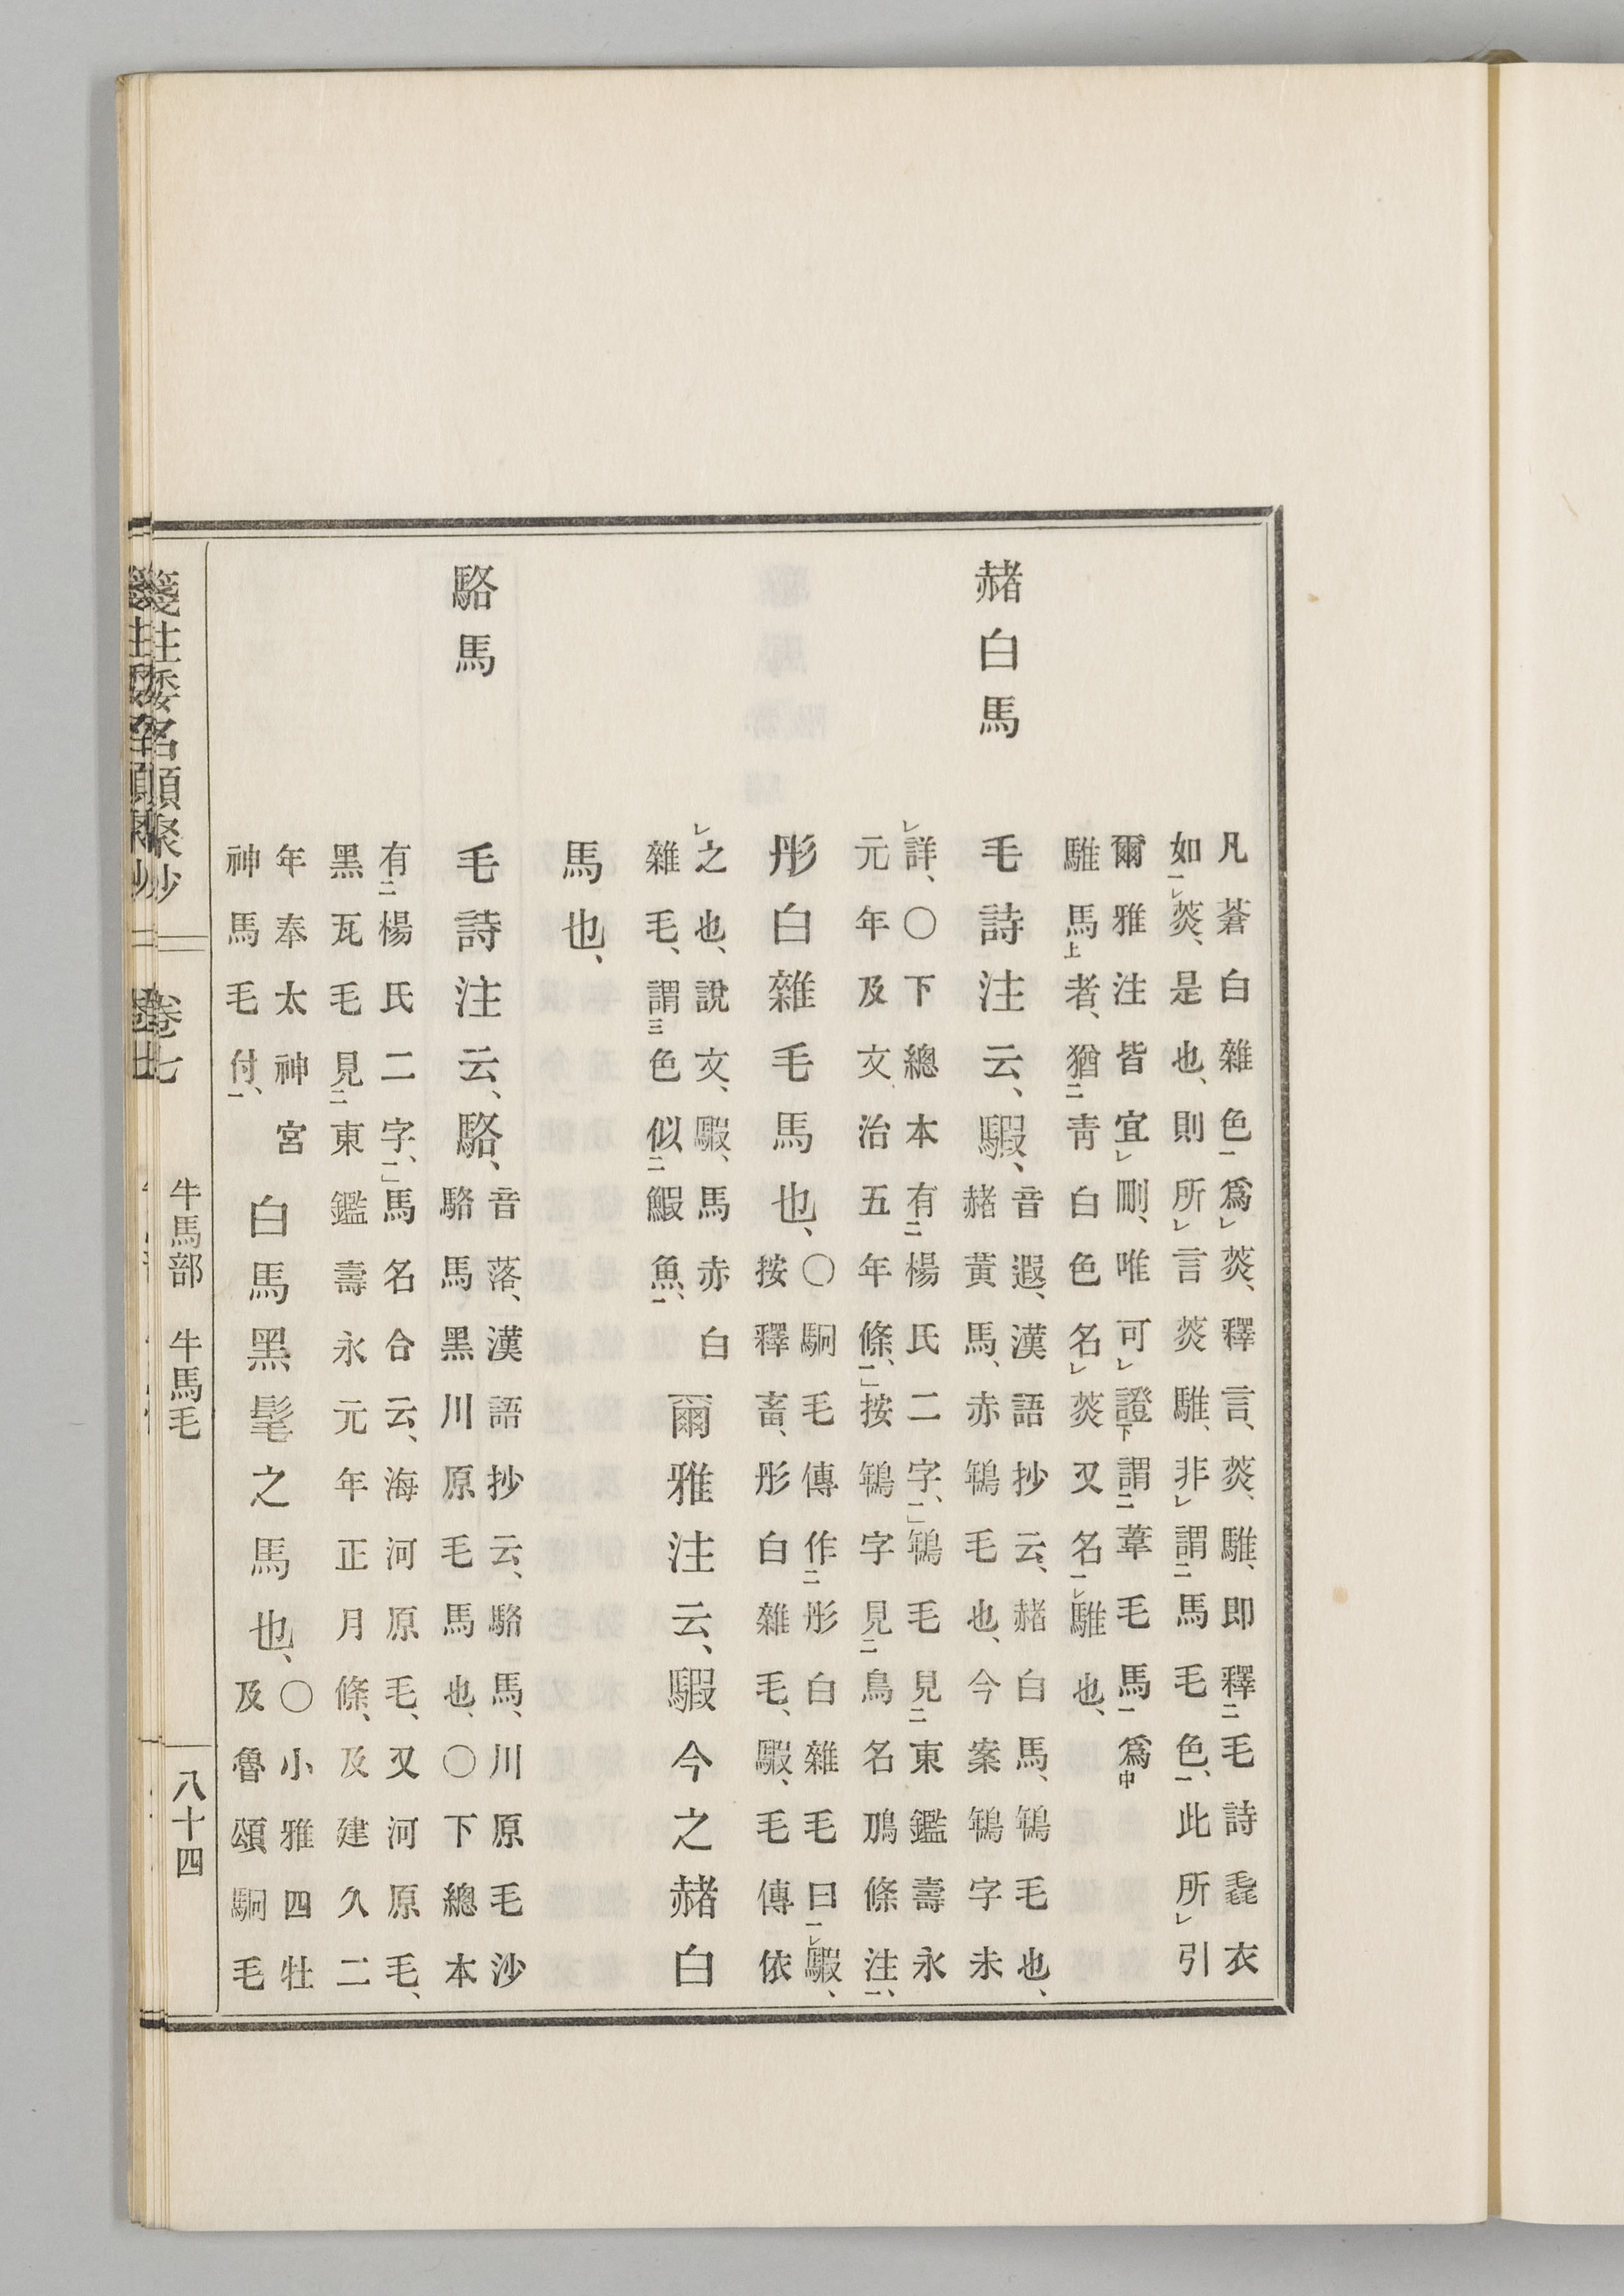 凡蒼白雜色一爲レ菼、釋言、菼、騅、即釋二毛詩毳衣
如一レ菼、是也、則所レ言菼騅、非レ謂二馬毛色一、此所レ引
爾雅注皆宜レ刪、唯可レ證下謂二葦毛馬一爲中
騅馬上者、猶二靑白色名レ菼又名一レ騅也、
赭白馬
毛詩注云、騢、音遐、漢語抄云、赭白馬、鴾毛也、
赭黃馬、赤鴾毛也、今案鴾字未
レ詳、〇下總本有二楊氏二字、一」鴾毛見二東鑑壽永
元年及文治五年條、一」按鴾字見二鳥名鴾條注一、
彤白雜毛馬也、〇駉毛傳作二彤白雜毛曰一レ騢、
按釋畜、彤白雜毛、騢、毛傳依
レ之也、說文、騢、馬赤白
雜毛、謂三色似二鰕魚、一
爾雅注云、騢今之赭白
馬也、
駱馬
毛詩注云、駱、音落、漢語抄云、駱馬、川原毛沙
駱馬黑川原毛馬也、〇下總本
有二楊氏二字、一」馬名合云、海河原毛、又河原毛、
黑瓦毛見二東鑑壽永元年正月條、及建久二
年奉太神宮
神馬毛付、一
白馬黑髦之馬也、〇小雅四牡
及魯頌駉毛
箋注倭名類聚抄 卷七 牛馬部 牛馬毛 八十四